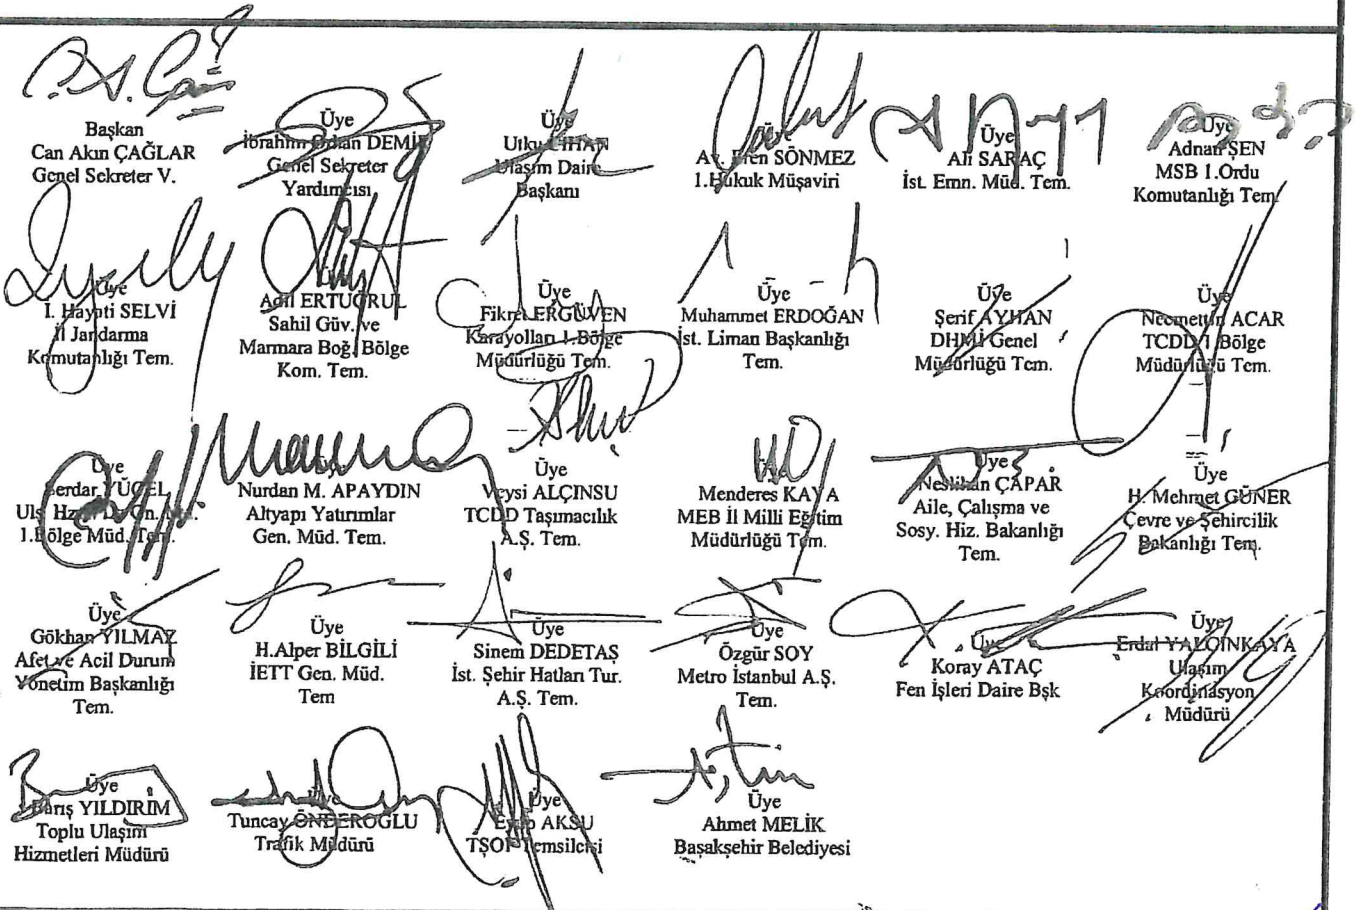 Başkan
Can Akın ÇAĞLAR
Genel Sekreter V.
Üye
İbrahim Orhan DEMİR
Genel Sekreter
Yardımcısı
Üye
Utku CİHAN
Ulaşım Daire
Başkanı
Üye
Av. Eren SÖNMEZ
1.Hukuk Müşaviri
Üye
Ali SARAÇ
İst. Emn. Müd. Tem.
Üye
Adnan ŞEN
MSB 1.Ordu
Komutanlığı Tem.
Üye
İ. Hayati SELVİ
İl Jandarma
Komutanlığı Tem.
Adil ERTUĞRUL
Sahil Güv. ve
Marmara Boğ. Bölge
Kom. Tem.
Üye
Fikret ERGÜVEN
Karayolları 1.Bölge
Müdürlüğü Tem.
Üye
Muhammet ERDOĞAN
İst. Liman Başkanlığı
Tem.
Üye
Şerif AYHAN
DHMİ Genel
Müdürlüğü Tem.
Üye
Necmettin ACAR
TCDD 1.Bölge
Müdürlüğü Tem.
Üye
Serdar YÜCEL
1.Bölge Müd. Tem.
Nurdan M. APAYDIN
Altyapı Yatırımlar
Gen. Müd. Tem.
Üye
Veysi ALÇINSU
TCDD Taşımacılık
A.Ş. Tem.
Menderes KAYA
MEB İl Milli Eğitim
Müdürlüğü Tem.
Üye
Neslihan ÇAPAR
Aile, Çalışma ve
Sosy. Hiz. Bakanlığı
Tem.
Üye
H. Mehmet GÜNER
Çevre ve Şehircilik
Bakanlığı Tem.
Üye
Gökhan YILMAZ
Afet ve Acil Durum
Yönetim Başkanlığı
Tem.
Üye
H.Alper BİLGİLİ
İETT Gen. Müd.
Tem
Üye
Sinem DEDETAŞ
İst. Şehir Hatları Tur.
A.Ş. Tem.
Üye
Özgür SOY
Metro İstanbul A.Ş.
Tem.
Üye
Koray ATAÇ
Fen İşleri Daire Bşk
Üye
Erdal YALÇINKAYA
Ulaşım
Koordinasyon
Müdürü
Üye
Barış YILDIRIM
Toplu Ulaşım
Hizmetleri Müdürü
Üye
Tuncay ÖNDEROĞLU
Trafik Müdürü
Üye
Eyüp AKSU
TŞOF Temsilcisi
Üye
Ahmet MELİK
Başakşehir Belediyesi